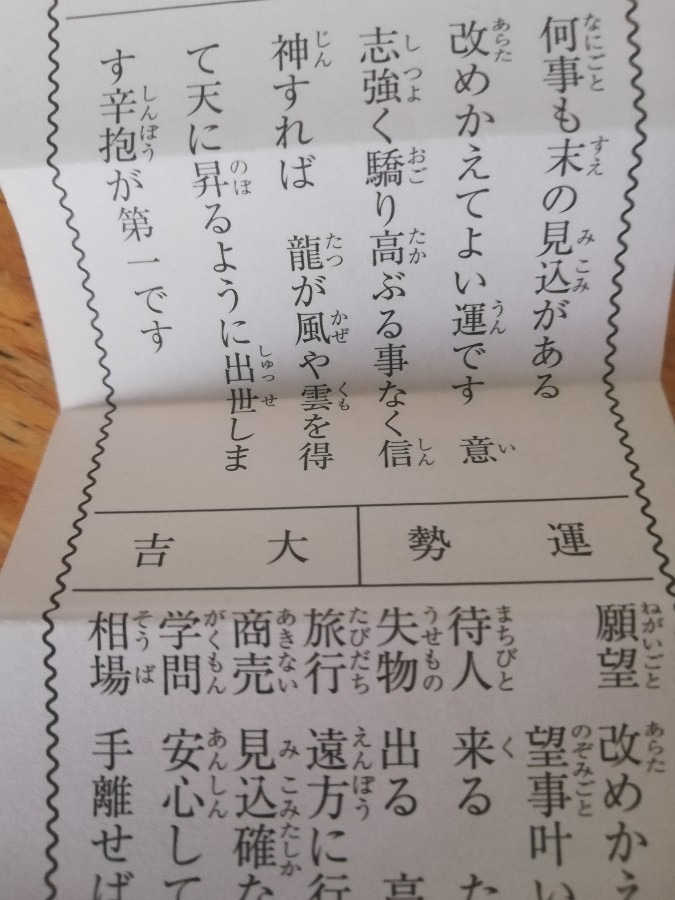 何事も末の見込がある
改めかえてよい運です 意
志強く驕り高ぶる事なく信
神すれば 龍が風や雲を得
て天に昇るように出世しま
す辛抱が第一です
運勢 大吉
願望 改めかえ
望事叶い
待人 来る た
失物 出る 高
旅行 遠方に行
商売 見込確な
学問 安心して
相場 手離せば